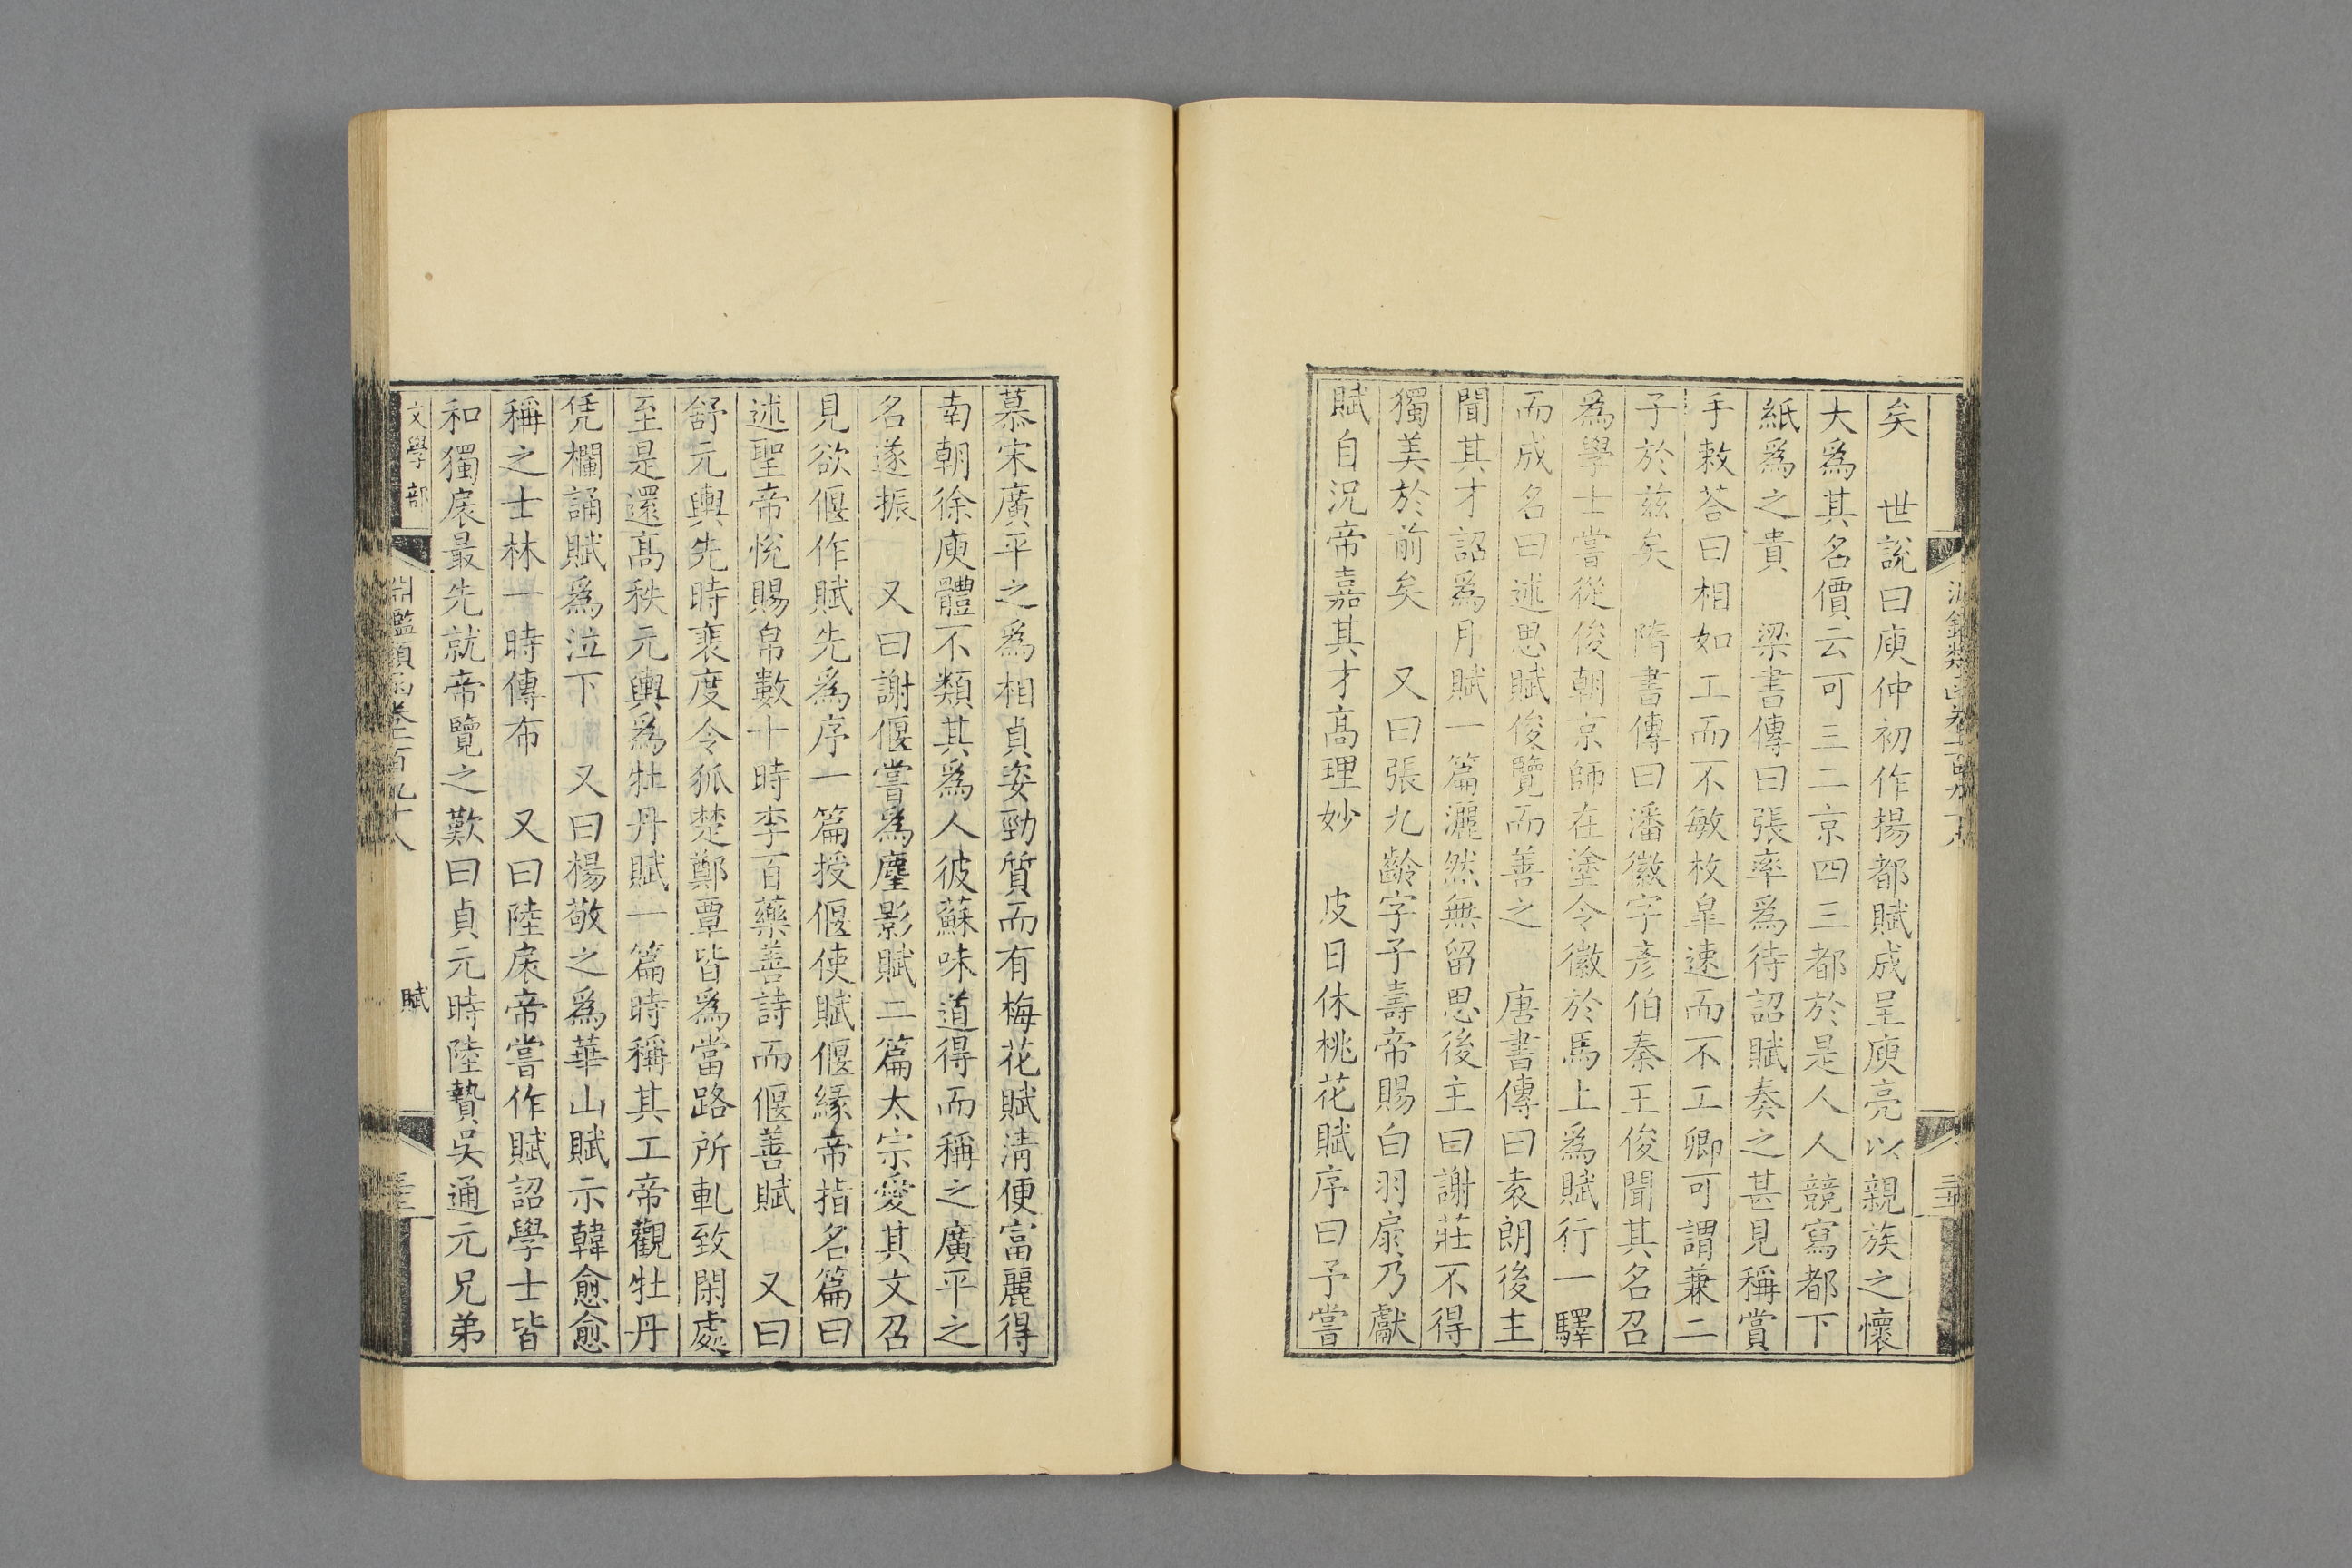 矣　世說曰庾仲初作揚都賦成呈庾亮以親族之懷
大爲其名價云可三二京四三都於是人人競寫都下
紙爲之貴　梁書傳曰張率爲待詔賦奏之甚見稱賞
手敕荅曰相如工而不敏枚臯速而不工卿可謂兼二
子於茲矣　隋書傳曰潘徽字彥伯秦王俊聞其名召
爲學士嘗從俊朝京師在塗令徽於馬上爲賦行一驛
而成名曰述思賦俊覽而善之　唐書傳曰袁朗後主
聞其才詔爲月賦一篇灑然無留思後主曰謝莊不得
獨美於前矣　又曰張九齡字子壽帝賜白羽扇乃獻
賦自况帝嘉其才高理妙　皮日休桃花賦序曰予嘗
慕宋廣平之爲相貞姿勁質而有梅花賦清便富麗得
南朝徐庾體不類其爲人彼蘇味道得而稱之廣平之
名遂振　又曰謝偃嘗爲塵影賦二篇太宗愛其文召
見欲偃作賦先爲序一篇授偃使賦偃緣帝指名篇曰
述聖帝悅賜帛數十時李百藥善詩而偃善賦　又曰
舒元輿先時裴度令狐楚鄭覃皆爲當路所軋致閑處
至是還高秩元輿爲牡丹賦一篇時稱其工帝觀牡丹
凭欄誦賦爲泣下　又曰楊敬之爲華山賦示韓愈愈
稱之士林一時傳布　又曰陸扆帝嘗作賦詔學士皆
和獨扆最先就帝覽之歎曰貞元時陸贄吳通元兄弟
文學部　淵鑑類函卷一百九十八　賦